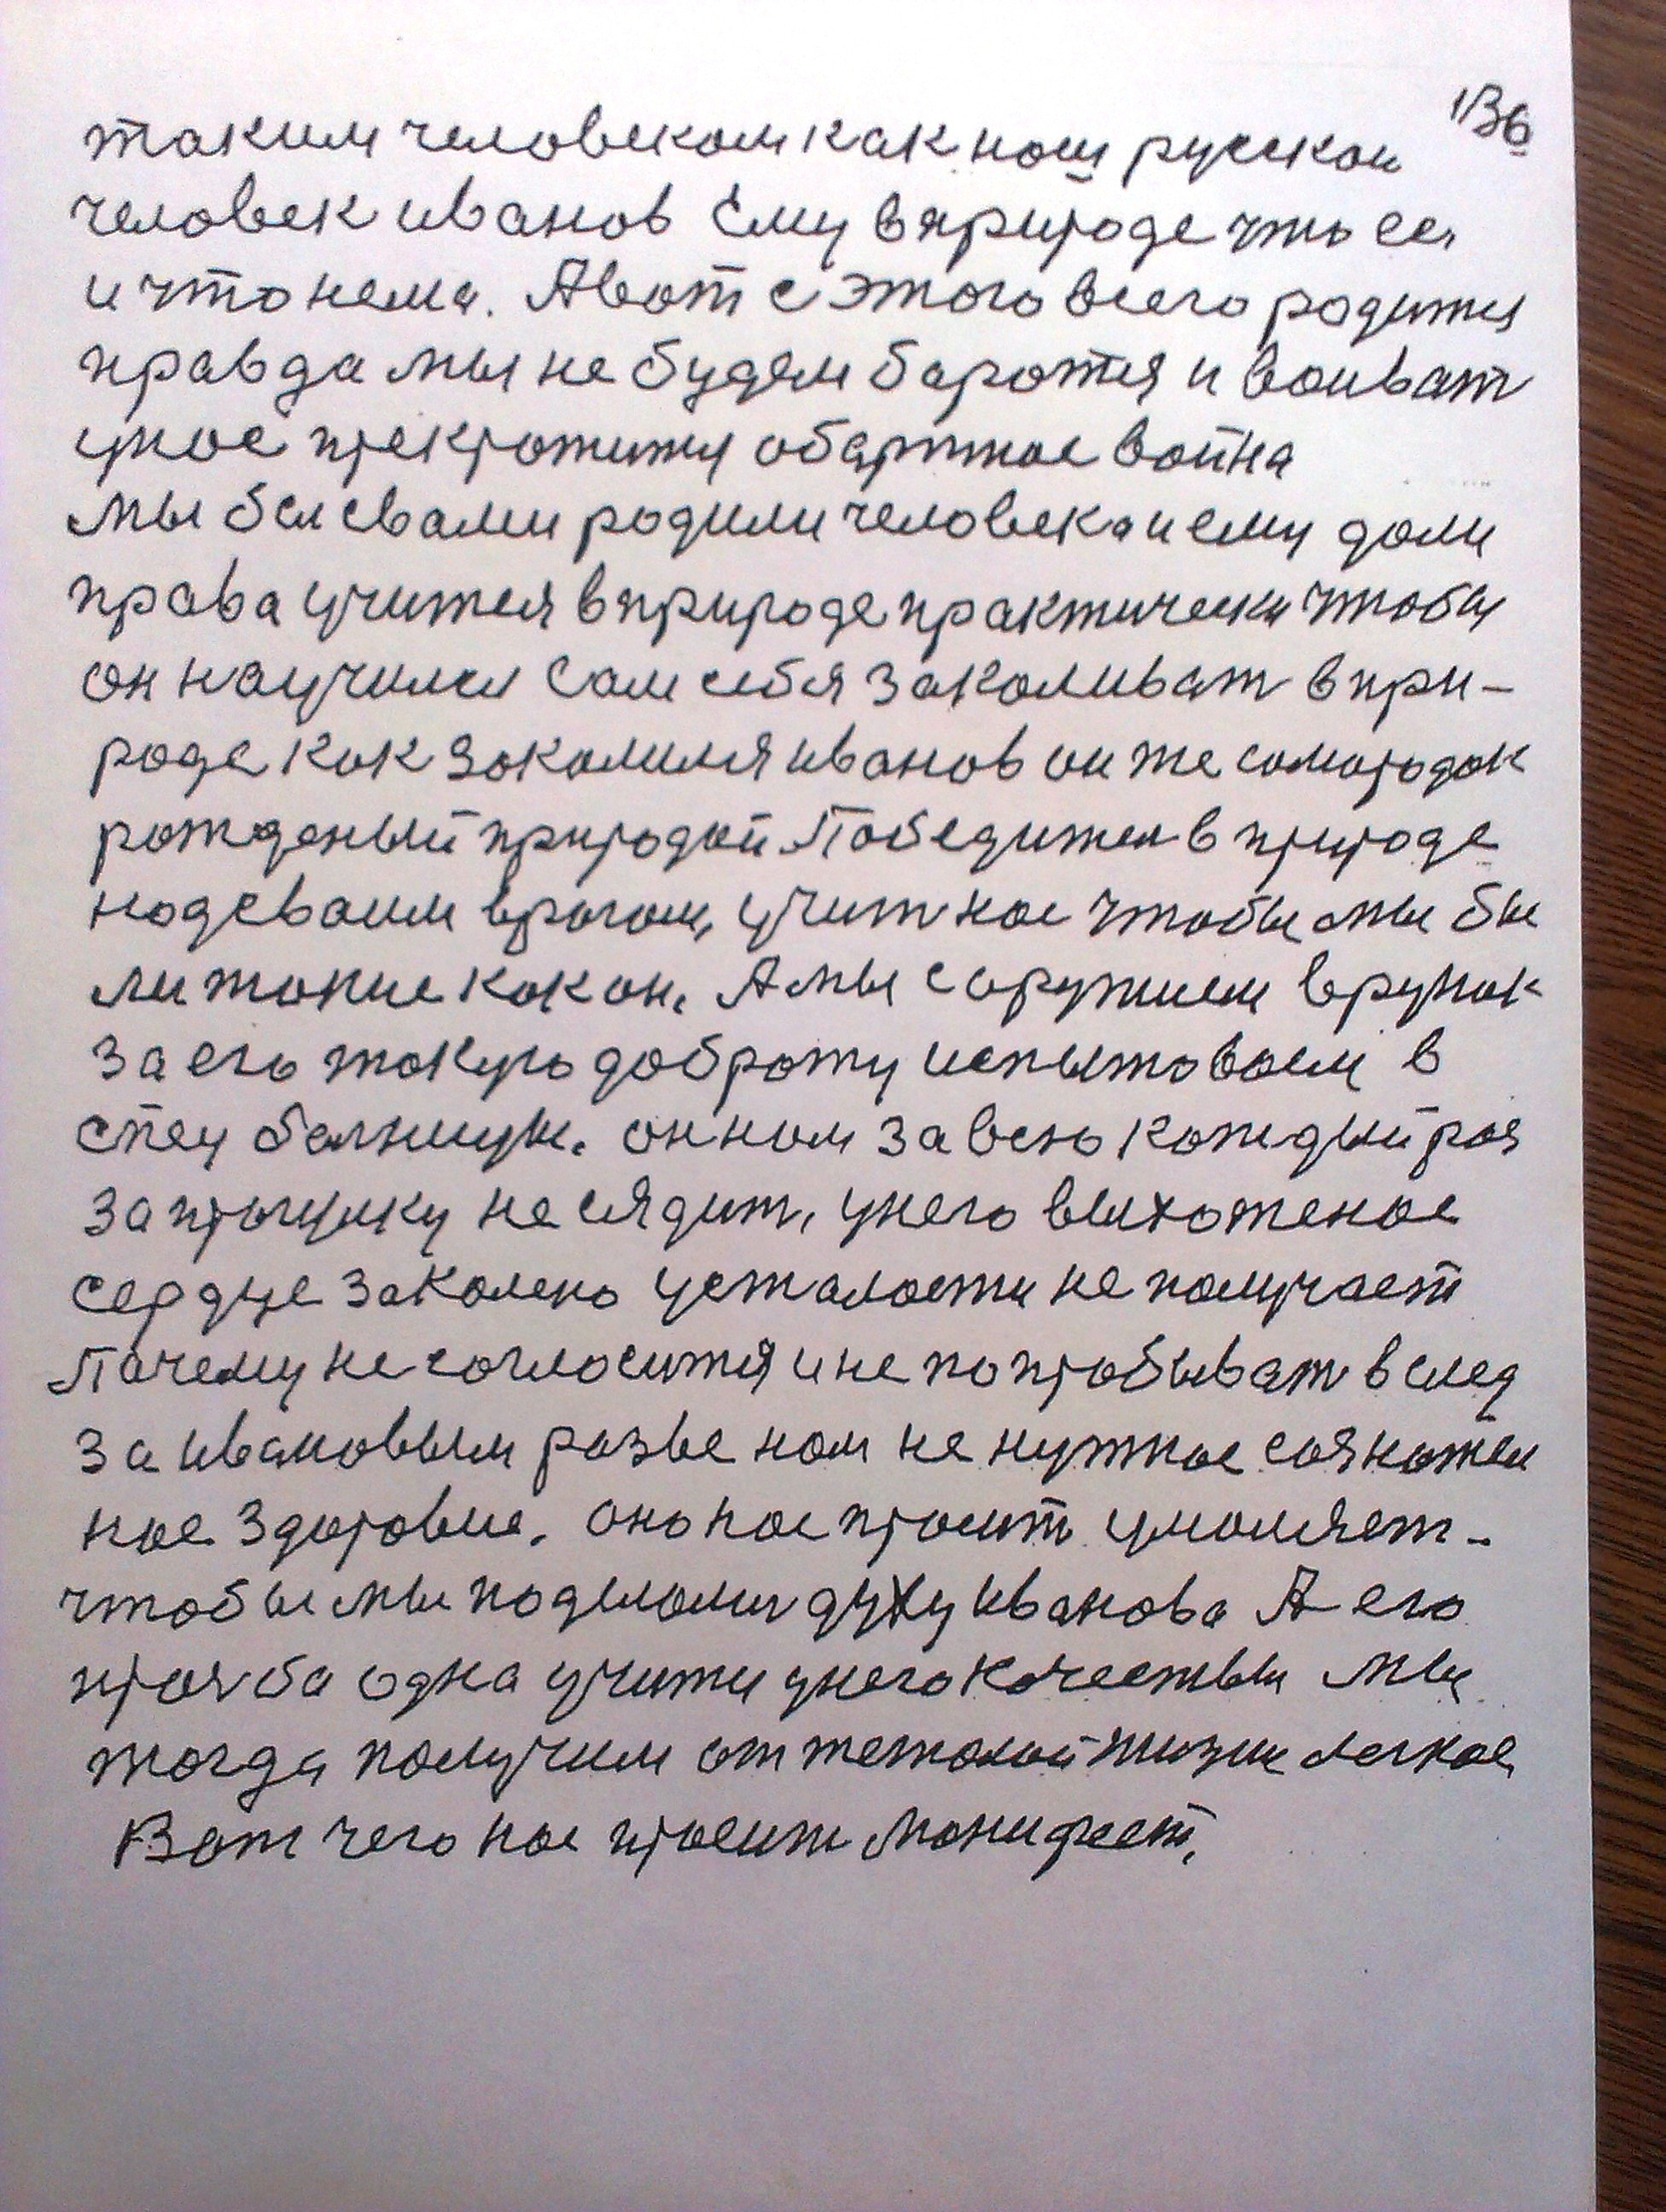 136
таким человеком как наш русской
человек иванов Ему в природе что ес
и что нема. А вот с этого всего родится
правда мы не будем баротся и воиват
унас прекротится обарптное война
мы бы свами родили человека и ему дали
права учится в природе практически чтобы
он научился Сам себя закаливат в при-
роде как закалился иванов он же самородок
рожденый природой Победител в природе
над сваим врагом, учит нас чтобы мы бы
ли такие как он. А мы соружием в руках
за его такую доброту испытоваем в
спец болницах. он нам за всю каждый раз
за прошлику не сядит, унего выхоженое
сердце заколено усталости не палучает
Пачему не согласится и не попробыват в след
за ивановым разве нам не нужное
ное здоровие. оно нас просит умоляет -
чтобы мы подышали духу иванова А его
прозба одна учити унего качествы мы
тогда получим от тежолой жизни легкое
Вот чего нас просит Манифест.